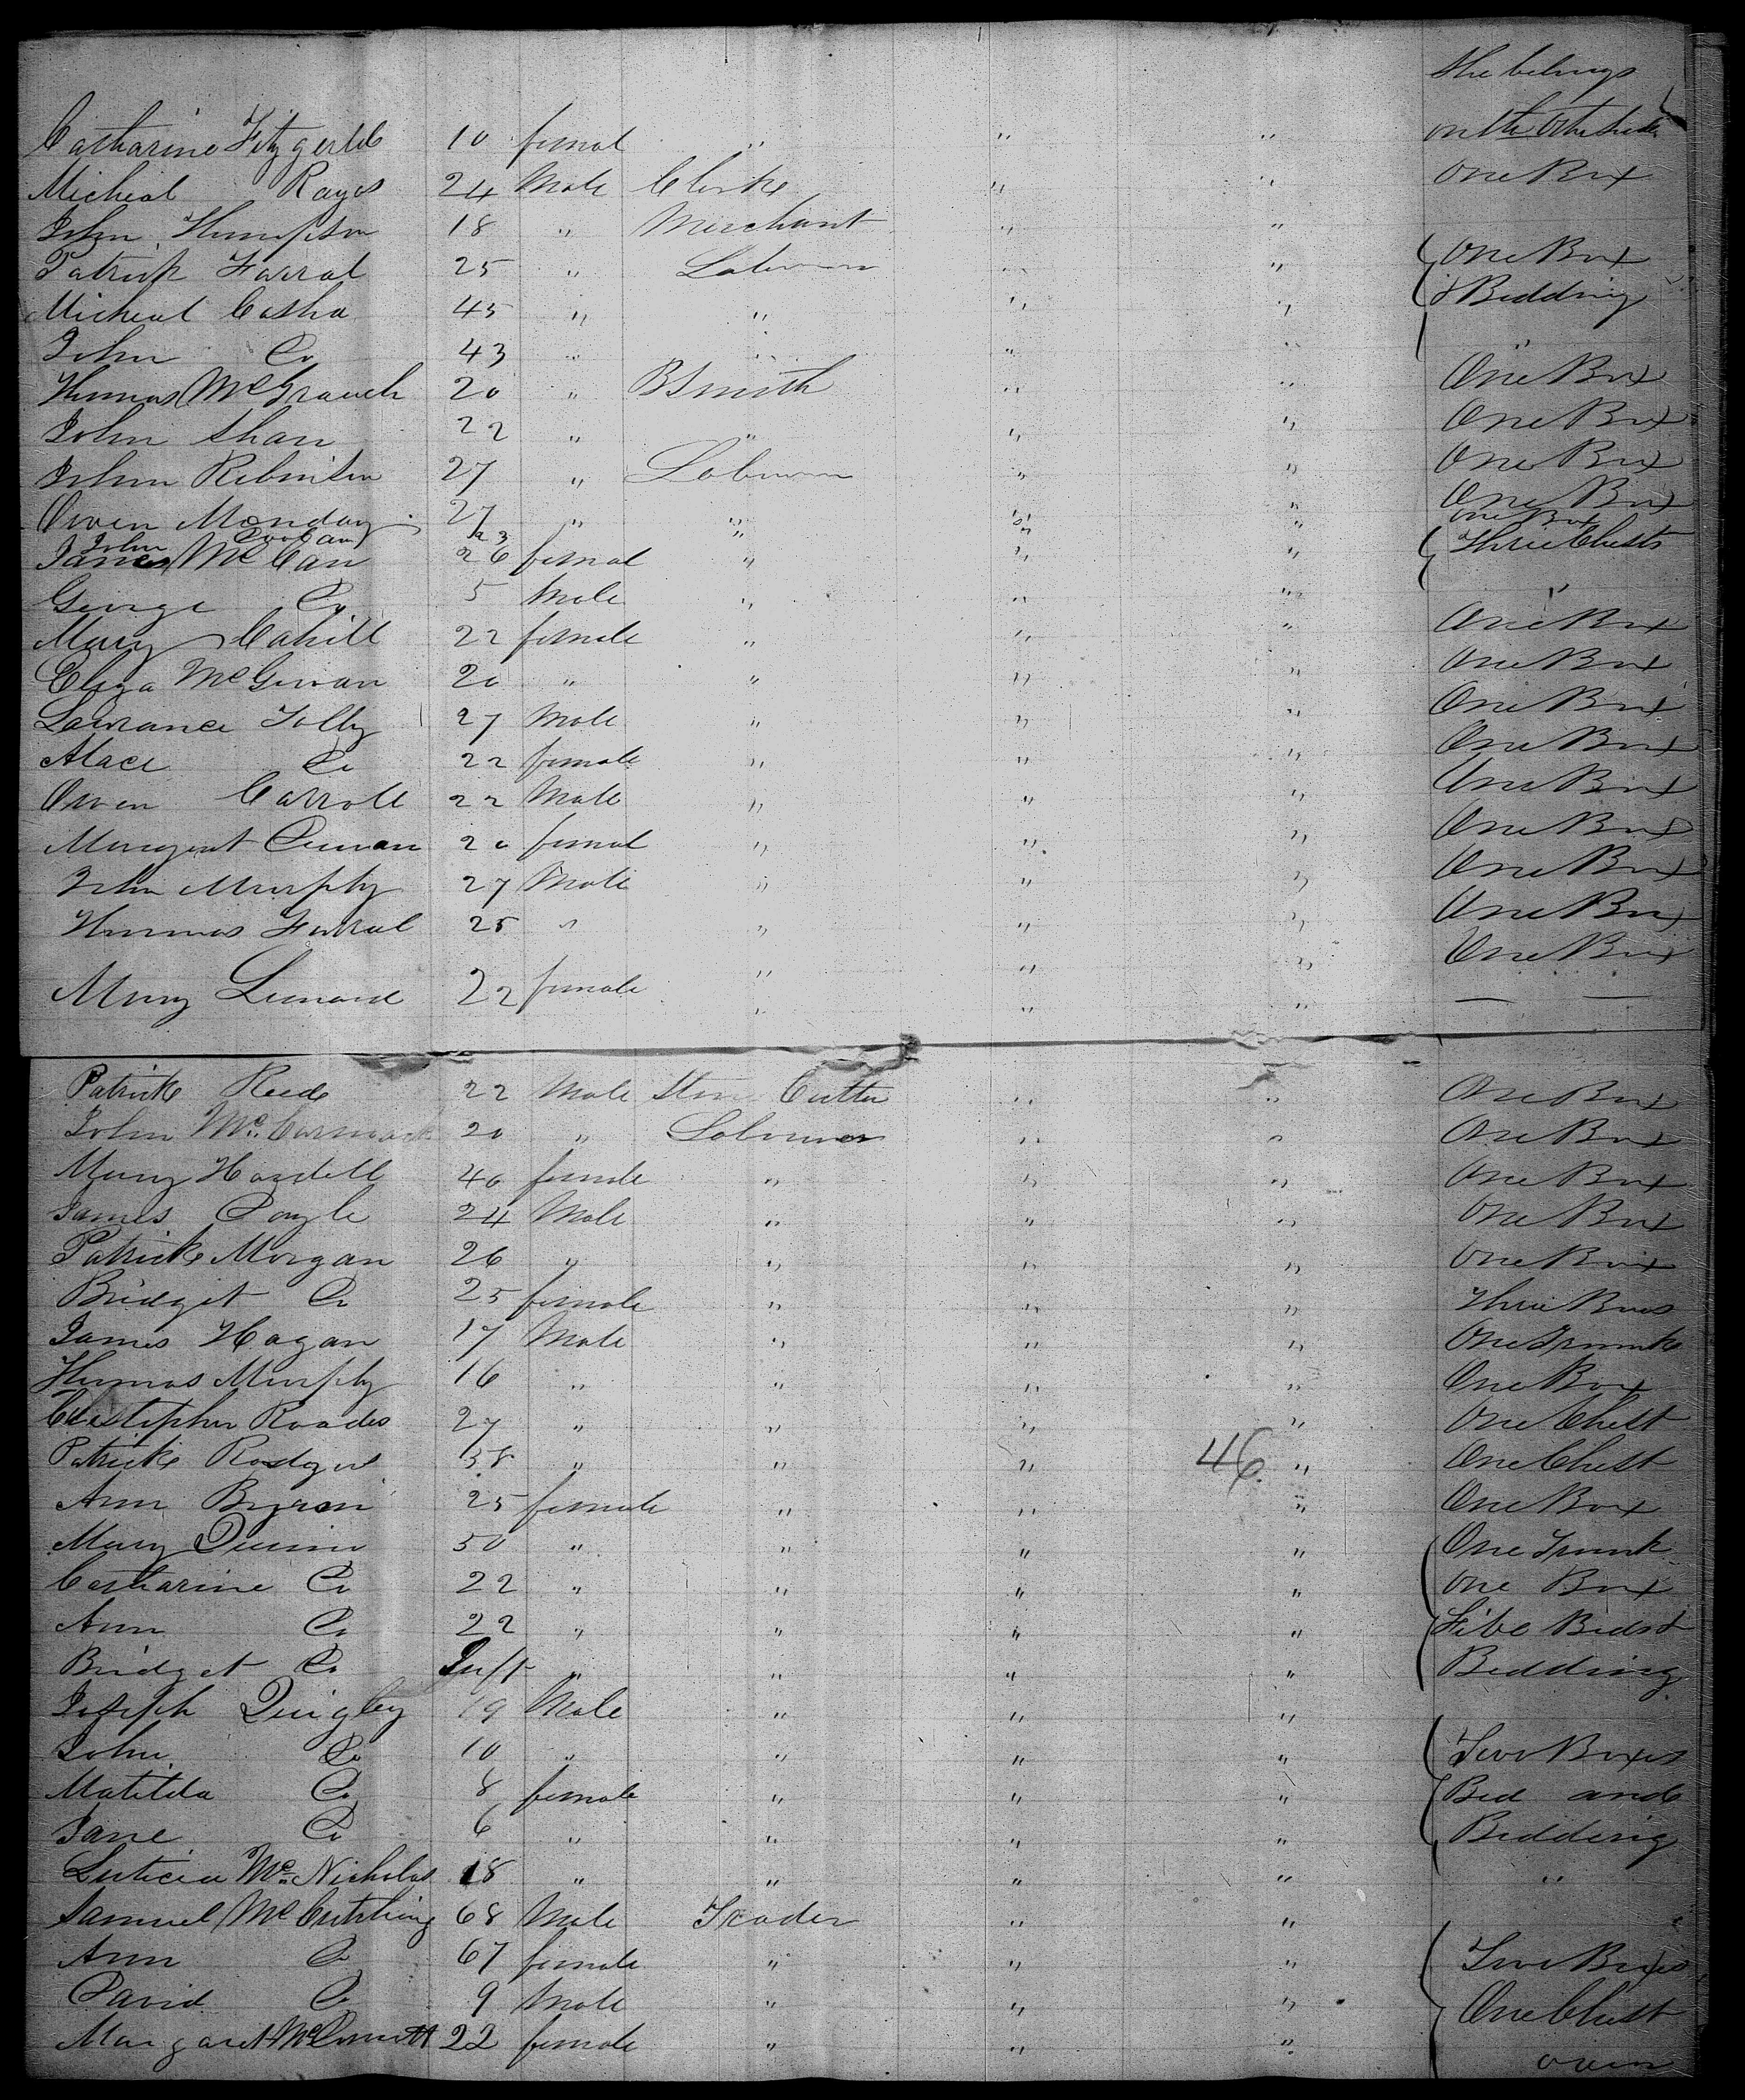 She belongs
Catharine Fitzgerld 10 femal " " " on the Other side
Micheal Rayes 24 Male Clerke " " One Box
John Thompson 18 " Merchant " "
Patrick Farral 25 " Labourer " " One Box
Micheal Casha 45 " " " " & Bedding
John Do 43 " " " " "
Thomas McGrauch 20 " BSmith " " One Box
John Shan 22 " " " " One Box
John Robinson 27 " Labourer " " One Box
Owen Monday 27 " " " " One Box
John Coogan 23 " " " One Box
James McCan 26 femal " " " Three Chests
George Do 5 Male " " " "
Mary Cahill 22 female " " " One Box
Eliza McGowan 20 " " " " One Box
Lawrance Tolly 27 Male " " " One Box
Alace Do 22 female " " " One Box
Owen Carroll 22 Male " " " One Box
Margreat Curran 20 femal " " " One Box
John Murphy 27 Male " " " One Box
Thomas Farral 25 " " " " One Box
" " " One Box
Mary Lenard 22 female " " " — —
Patricke Reede 22 Male Stone Cutter " " One Box
John Mc.Cormack 20 " Labourer " " One Box
Mary Hardell 40 female " " " One Box
James Doyle 24 Male " " " One Box
Patricke Morgan 26 " " " " One Box
Bridget Do 25 female " " " Three Boxes
James Hagan 17 Male " " " One Trunke
Thomas Murphy 16 " " " " One Box
Cristipher Roades 27 " " " " One Chest
Patricke Rodgers 38 " " " 46. " One Chest
Ann Byron 25 female " " " One Box
Mary Quinn 50 " " " " One Trunk
Catharine Do 22 " " " " One Box
Ann Do 22 " " " " Five Beds &
Bridget Do Inft " " " " Bedding
Joseph Quigley 19 Male " " "
John Do 10 " " " " Two Boxes
Matilda Do 8 female " " " Bed and
Jane Do 6 " " " " Bedding
Luticia Mc Nicholas 18 " " " " "
Samuel McCutching 68 Male Trader " "
Ann Do 67 female " " " Two Boxes
David Do 9 Male " " " One Chest
Margaret McDermott 22 female " " " over